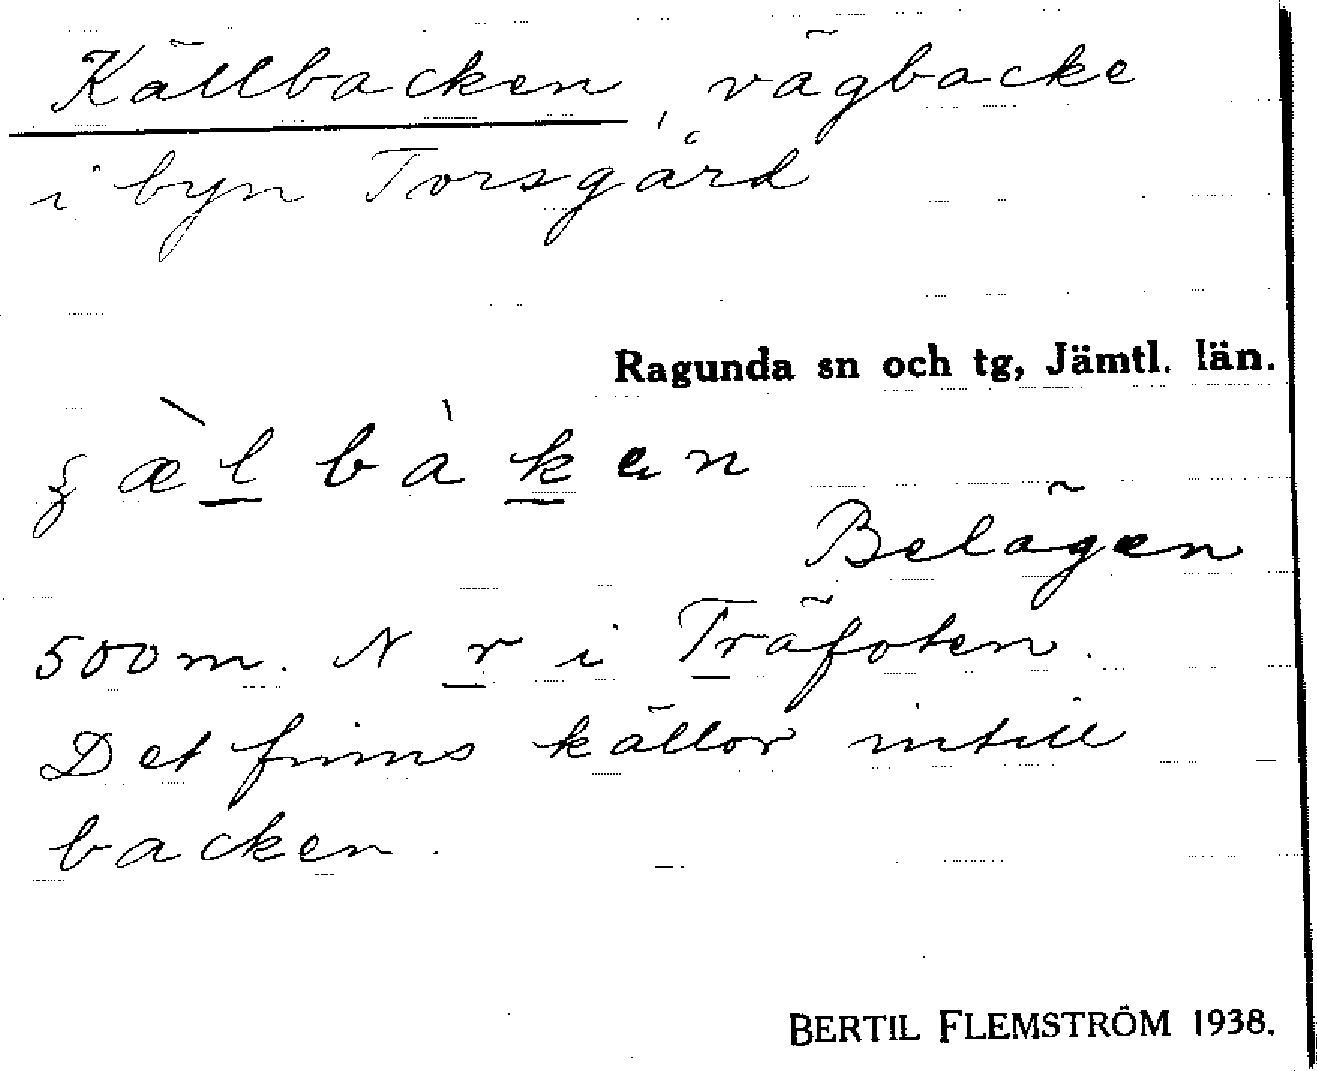 Källbacken, vägbacke
i byn Torsgård
Ragunda sn och tg, Jämtl. län.
ʒæ̀l bàken
Belägen
500 m. N r i Träfoten.
Det finns källor intill
backen.
BERTIL FLEMSTRÖM 1938.